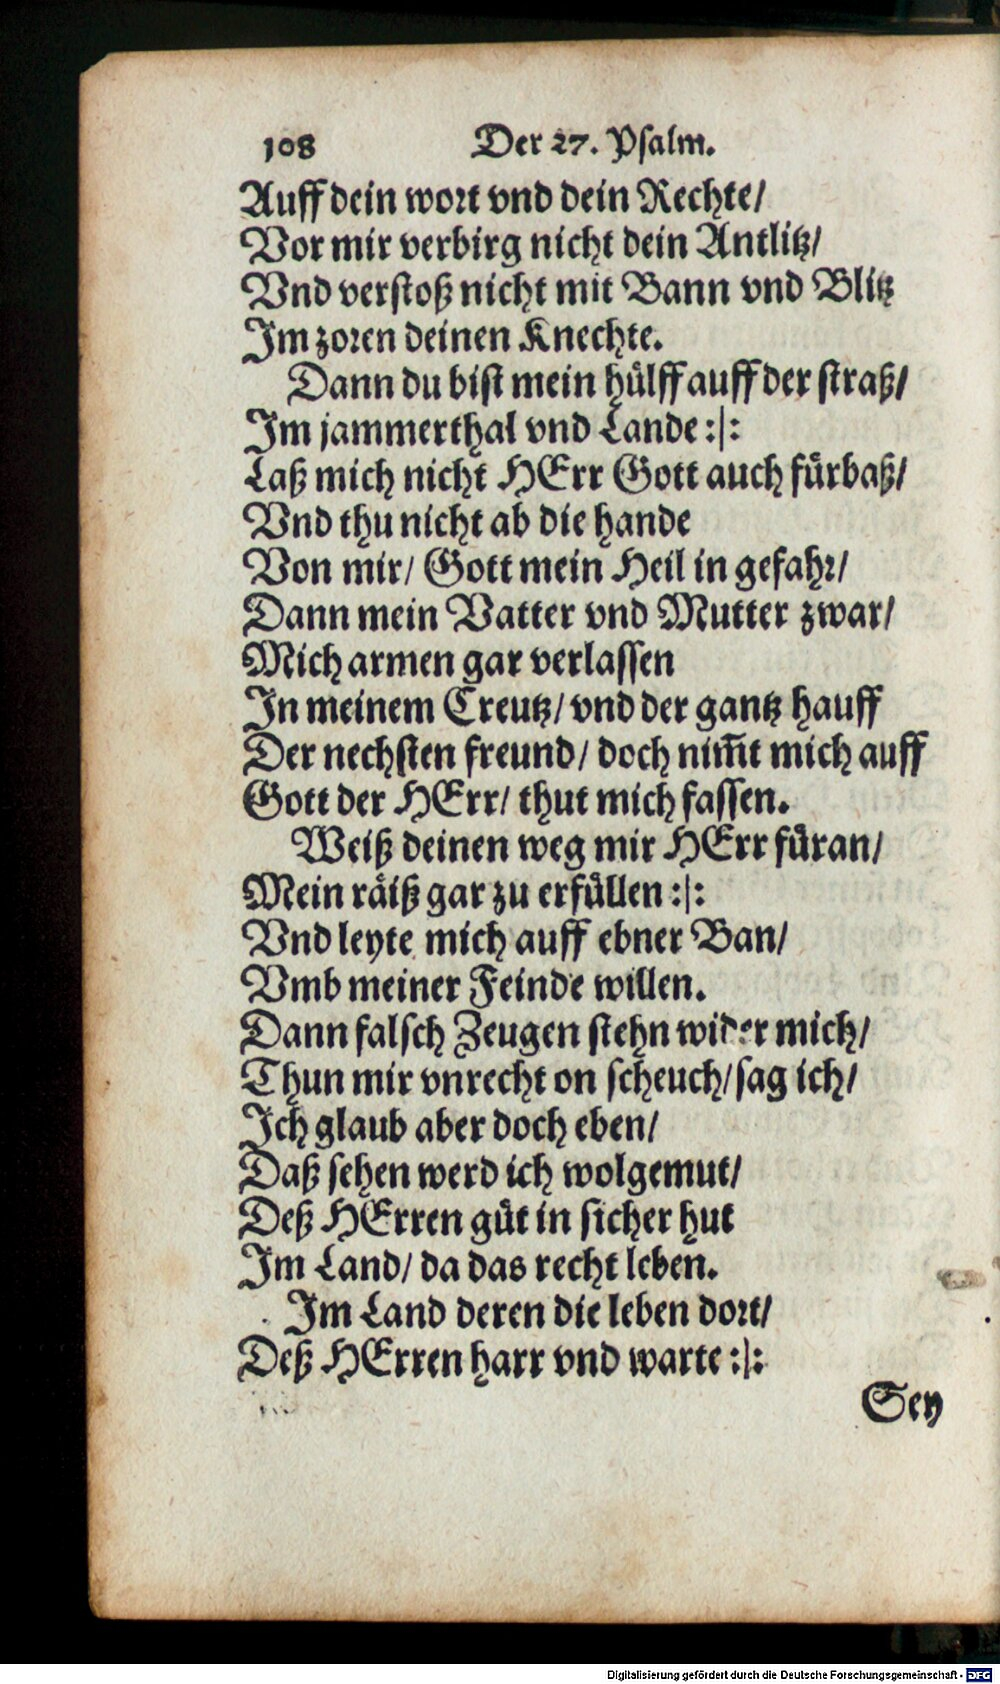 108 Der 27. Psalm.
Auff dein wort vnd dein Rechte/
Vor mir verbirg nicht dein Antlitz/
Vnd verstoß nicht mit Bann vnd Blitz
Im zoren deinen Knechte.
Dann du bist mein hülff auff der straß/
Im jammerthal vnd Lande :|:
Laß mich nicht HErr Gott auch fürbaß/
Vnd thu nicht ab die hande
Von mir/ Gott mein Heil in gefahr/
Dann mein Vatter vnd Mutter zwar/
Mich armen gar verlassen
In meinem Creutz/ vnd der gantz hauff
Der nechsten freund/ doch nim̄t mich auff
Gott der HErr/ thut mich fassen.
Weiß deinen weg mir HErr füran/
Mein räiß gar zu erfüllen :|:
Vnd leyte mich auff ebner Ban/
Vmb meiner Feinde willen.
Dann falsch Zeugen stehn wider mich/
Thun mir vnrecht on scheuch/ sag ich/
Ich glaub aber doch eben/
Daß sehen werd ich wolgemut/
Deß HErren güt in sicher hut
Im Land/ da das recht leben.
Im Land deren die leben dort/
Deß HErren harr vnd warte :|:
Sey
Digitalisierung gefördert durch die Deutsche Forschungsgemeinschaft - DFG